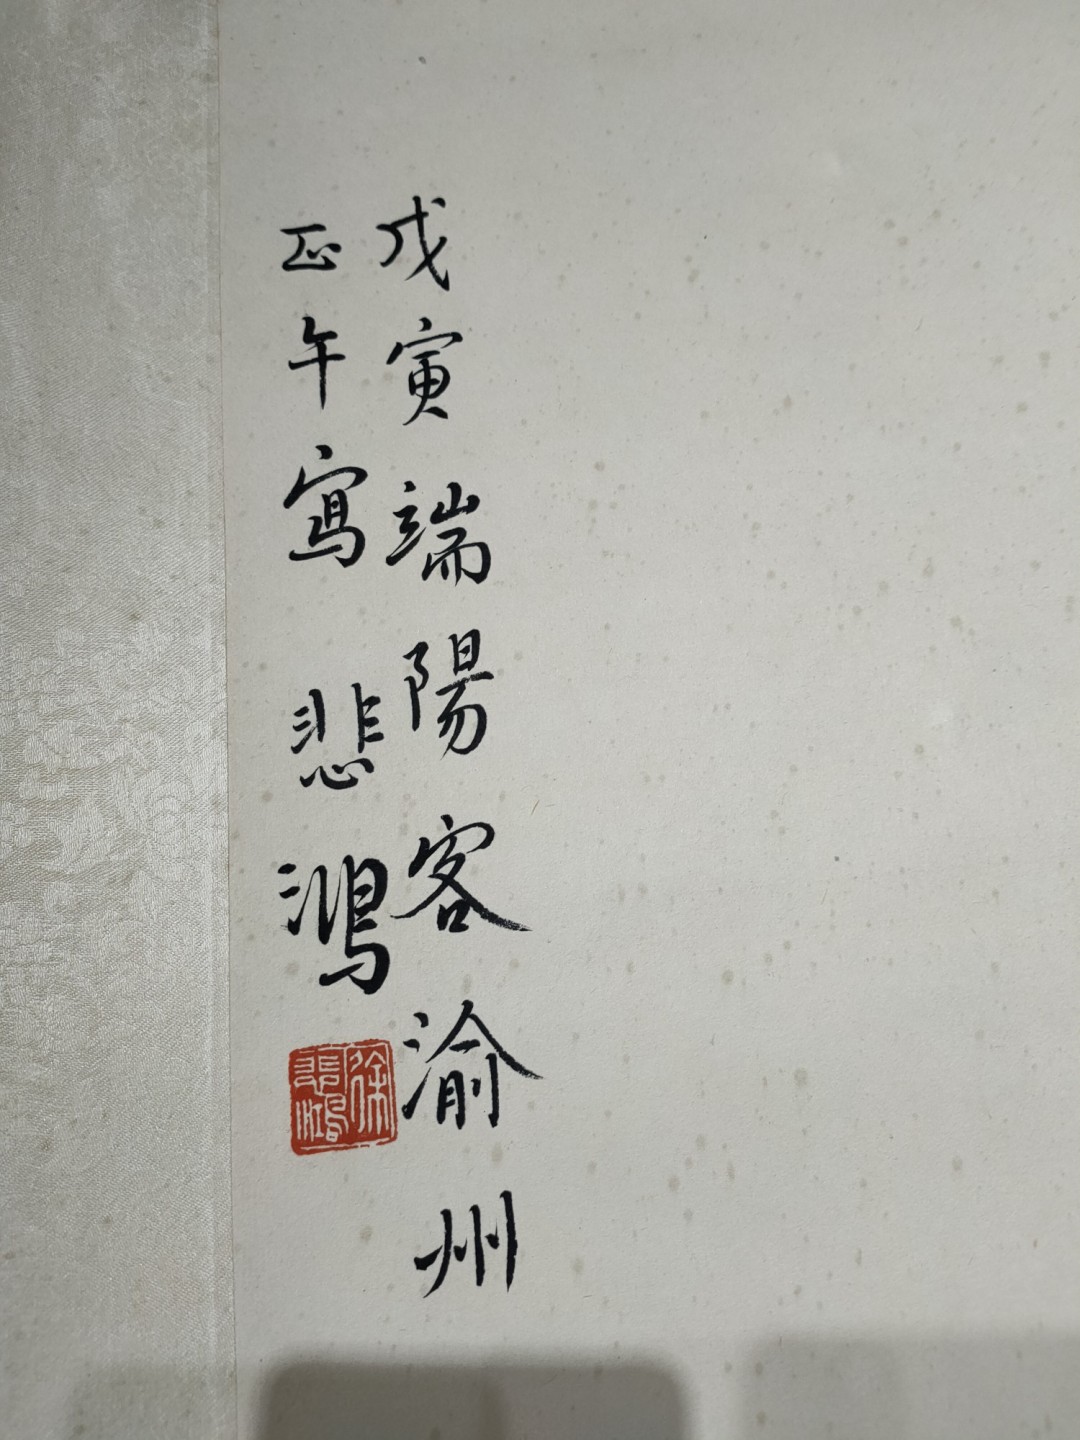 戊寅端陽客渝州
正午寫 悲鴻
徐悲鴻